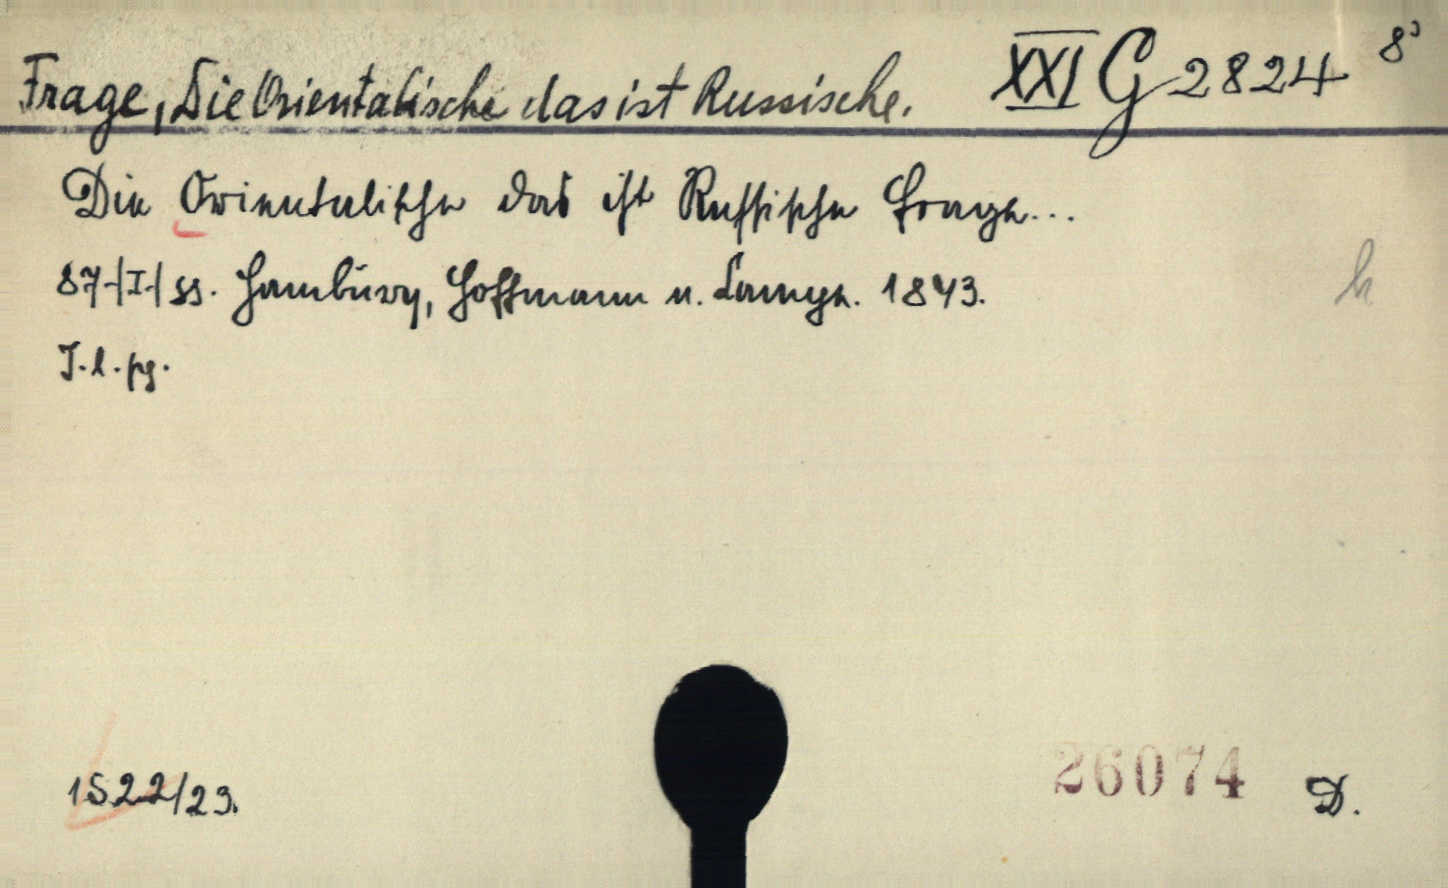 Frage, Die Orientalische das ist Russische. XXI G 2824 8°
Die Orientalische das ist Russische Frage...
87+|I+| ss. Hamburg, Hoffmann u. Campe. 1843.
J. l. pg.
h
1522/23.
26074 D.